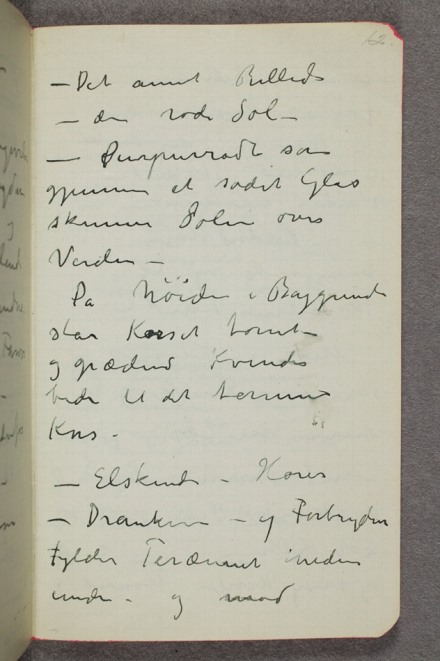 62.
– Det annet Billede
– den røde Sol –
– Purpurrødt som
gjennem et sodet Glas
skinner Solen over
Verden –
På Høiden i Baggrunden
står Korset tomt
og grædend Kvinder
beder til det tomme
Kors –
– Elskende – Horer
– Drankere – og Forbrydere
fylder Terænnet neden
under – og